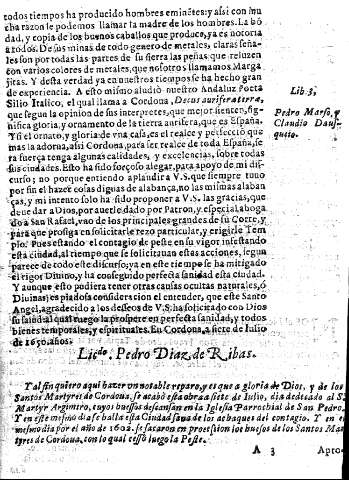 todos tiempos ha producido hombres eminẽtes; y asi con mu
cha razon le podemos llamar la madre de los hombres. La bõ
dad, y copia de los buenos caballos que produce, ya es notoria
a todos. De sus minas de todo genero de metales, claras seña-
les son por todas las partes de su sierra las peñas que reluzen
con varios colores de metales, que nosotros llamamos Marga
jitas. Y desta verdad ya en nuestros tiempos se ha hecho gran
de experiencia. A esto mismo aludiò nuestro Andaluz Poeta
Silio Italico, el qual llama a Cordoua, Decus auriferæ terræ,
que segun la opinion de sus interpretes, que mejor sienten, sig-
nifica gloria, y ornamento de la tierra aurifera, que es España.
Y si el ornato, y gloria de vna casa, es el realce y perfecciõ que
mas la adorna, asi Cordoua, para ser realce de toda España, se
ra fuerça tenga algunas calidades, y excelencias, sobre todas
sus ciudades. Esto ha sido forçoso alegar, para apoyo de mi dis-
curso; no porque entiendo aplaudir a V.S. que siempre tuuo
por fin el hazer cosas dignas de alabança, no las mismas alaban
ças, y mi intento solo ha sido proponer a V.S. las gracias, que
deue dar a Dios, por auerle dado por Patron, y especial aboga
do a San Rafael, vno de los principales grandes de su Corte, y
para que prosiga en solicitarle rezo particular, y erigirle Tem
plo. Pues estando el contagio de peste en su vigor infestando
esta ciudad, al tiempo que se solicitauan estas acciones, segun
parece de todo este discurso, ya en este tiempo se ha mitigado
el rigor Diuino, y ha conseguido perfecta sanidad esta ciudad.
Y aunque esto pudiera tener otras causas ocultas naturales, ò
Diuinas; es piadosa consideracion el entender, que este Santo
Angel, agradecido a los deseos de V.S. ha solicitado con Dios
su salud, al qual ruego la prospere en perfecta sanidad, y todos
bienes temporales, y espirituales. En Cordoua, a siete de Iulio
de 1650. años.
Lib. 3.
Pedro Marso, y
Claudio Daus-
quio.
Licdo. Pedro Diaz de Ribas.
Y al fin quiero aqui hazer vn notable reparo, y es que a gloria de Dios, y de los
Santos Martyres de Cordoua, se acabò esta obra a siete de Iulio, dia dedicado al S.
Martyr Argimiro, cuyos huessos descansan en la Iglesia Parrochial de San Pedro.
Y en este mesmo dia se halla esta Ciudad sana de los achaques del contagio. Y en el
mesmo dia por el año de 1602. se sacaron en procession los huessos de los Santos Mar
tyres de Cordoua, con lo qual cessò luego la Peste.
A 3
Apro-